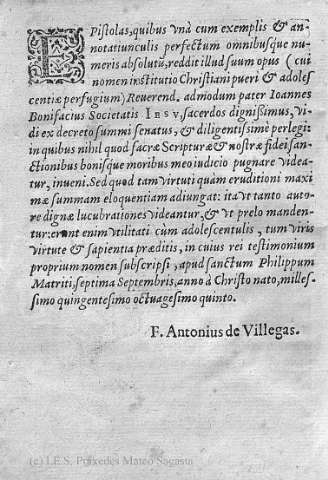 EPistolas, quibus vnà cum exemplis & an-
notatiunculis perfectum omnibusque nu-
meris absolutũ, reddit illud suum opus (cui
nomen institutio Christiani pueri & adoles
centiæ perfugium) Reuerend. admodum pater Ioannes
Bonifacius Societatis IESV, sacerdos dignissimus, vi-
di ex decreto summi senatus, & diligentissimè perlegi:
in quibus nihil quod sacræ Scripturæ & nostræ fidei san-
ctionibus bonisque moribus meo iudicio pugnare videa-
tur, inueni. Sed quod tam virtuti quàm eruditioni maxi
mæ summam eloquentiam adiungat: ita vt tanto auto-
re dignæ lucubrationes videantur, & vt prelo manden-
tur: erunt enim vtilitati cùm adolescentulis, tum viris
virtute & sapientia præditis, in cuius rei testimonium
proprium nomen subscripsi, apud sanctum Philippum
Matriti, septima Septembris, anno à Christo nato, milles-
simo quingentesimo octuagesimo quinto.
F. Antonius de Villegas.
(c) I.E.S. Práxedes Mateo Sagasta